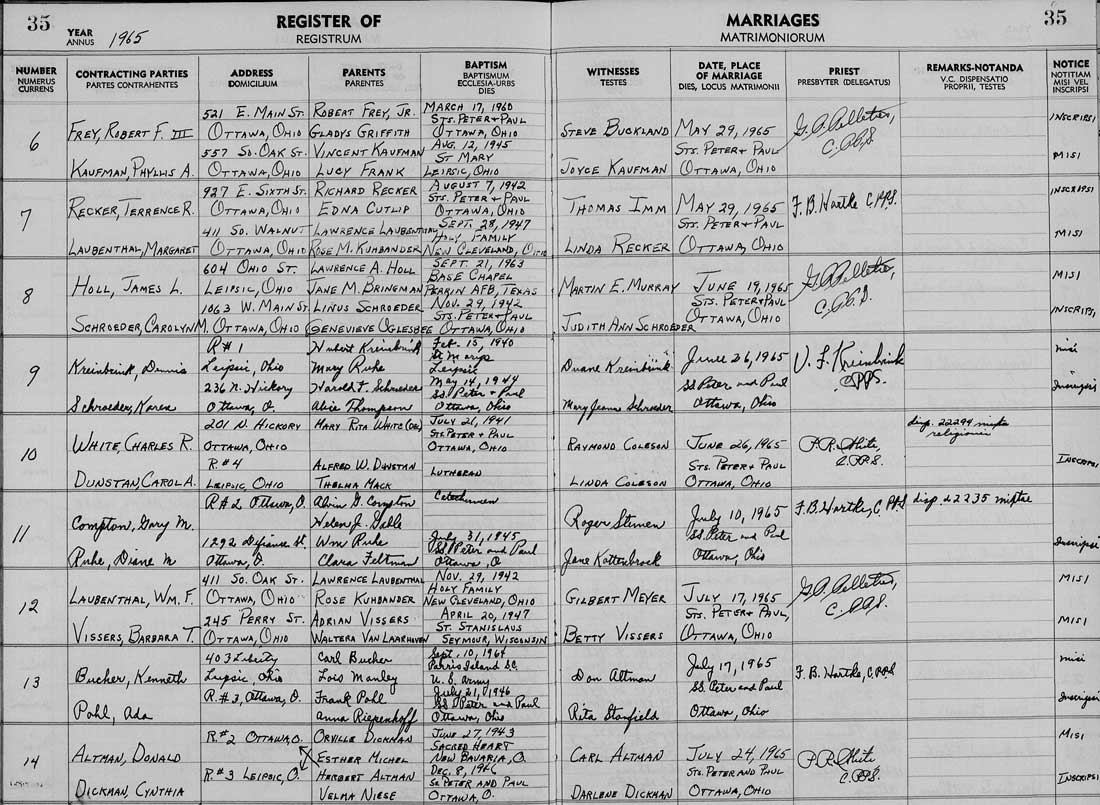 35
YEAR
ANNUS
1965
REGISTER OF
REGISTRUM
MARRIAGES
MATRIMONIORUM
35
NUMBER
NUMERUS
CURRENS
CONTRACTING PARTIES
PARTES CONTRAHENTES
ADDRESS
DOMICILIUM
PARENTS
PARENTES
BAPTISM
BAPTISMUM
ECCLESIA-URBS
DIES
WITNESSES
TESTES
DATE, PLACE
OF MARRIAGE
DIES, LOCUS MATRIMONII
PRIEST
PRESBYTER (DELEGATUS)
REMARKS-NOTANDA
V.C. DISPENSATIO
PROPRII, TESTES
NOTICE
NOTITIAM
MISI VEL
INSCRIPSI
6
FREY, ROBERT F. III
KAUFMAN, PHYLLIS A.
521 E. MAIN ST.
OTTAWA, OHIO
557 SO. OAK ST.
OTTAWA, OHIO
ROBERT FREY, JR.
GLADYS GRIFFITH
VINCENT KAUFMAN
LUCY FRANK
MARCH 17, 1960
STS. PETER + PAUL
OTTAWA, OHIO
AUG. 12, 1945
ST MARY
LEIPSIC, OHIO
STEVE BUCKLAND
JOYCE KAUFMAN
MAY 29, 1965
STS. PETER + PAUL
OTTAWA, OHIO
G. A. Pelletier,
C.PP.S.
INSCRIPSI
MISI
7
RECKER, TERRENCE R.
LAUBENTHAL, MARGARET
927 E. SIXTH ST.
OTTAWA, OHIO
411 SO. WALNUT
OTTAWA, OHIO
RICHARD RECKER
EDNA CUTLIP
LAWRENCE LAUBENTHAL
ROSE M. KUHBANDER
AUGUST 7, 1942
STS. PETER + PAUL
OTTAWA, OHIO
SEPT. 28, 1947
HOLY FAMILY
NEW CLEVELAND, OHIO
THOMAS IMM
LINDA RECKER
MAY 29, 1965
STS. PETER + PAUL
OTTAWA, OHIO
F. B. Hartke C.PP.S.
INSCRIPSI
MISI
8
HOLL, JAMES L.
SCHROEDER, CAROLYN M.
604 OHIO ST.
LEIPSIC, OHIO
1063 W. MAIN ST.
OTTAWA, OHIO
LAWRENCE A. HOLL
JANE M. BRINGMAN
LINUS SCHROEDER
GENEVIEVE OGLESBEE
SEPT. 21, 1963
BASE CHAPEL
PERRIN AFB, TEXAS
NOV. 29, 1942
STS. PETER + PAUL
OTTAWA, OHIO
MARTIN E. MURRAY
JUDITH ANN SCHROEDER
JUNE 19, 1965
STS. PETER + PAUL
OTTAWA, OHIO
G. A. Pelletier,
C.PP.S.
MISI
INSCRIPSI
9
Kreinbrink, Dennis
Schroeder, Karen
R#1
Leipsic, Ohio
236 N. Hickory
Ottawa, O.
Hubert Kreinbrink
Mary Ruhe
Harold F. Schroeder
Alice Thompson
Feb. 15, 1940
St Marys
Leipsic
May 14, 1944
SS. Peter + Paul
Ottawa, Ohio
Duane Kreinbrink
Mary Jeane Schroeder
June 26, 1965
SS Peter and Paul
Ottawa, Ohio
V. F. Kreinbrink
C.PP.S.
misi
Inscripsi
10
WHITE, CHARLES R.
DUNSTAN, CAROL A.
201 N. HICKORY
OTTAWA, OHIO
R#4
LEIPSIC, OHIO
MARY RITA WHITE
ALFRED W. DUNSTAN
THELMA MACK
JULY 21, 1941
STS. PETER + PAUL
OTTAWA, OHIO
LUTHERAN
RAYMOND COLESON
LINDA COLESON
JUNE 26, 1965
STS. PETER + PAUL
OTTAWA, OHIO
P.R. White
C.PP.S.
disp. 22294 mixtae
religionis
INSCRIPSI
11
Compton, Gary M.
Ruhe, Diane M
R#2 Ottawa, O.
1292 Defiance St.
Ottawa, O.
Alvin G. Compton
Helen J. Gable
Wm Ruhe
Clara Feltman
Catechumen
July 31, 1945
SS Peter and Paul
Ottawa, O
Roger Stimen
Jane Kottenbrock
July 10, 1965
SS Peter and Paul
Ottawa, Ohio
F. B. Hartke, C.PP.S
disp. 22235 mixtae
Inscripsi
12
LAUBENTHAL, WM. F.
VISSERS, BARBARA T.
411 SO. OAK ST.
OTTAWA, OHIO
245 PERRY ST.
OTTAWA, OHIO
LAWRENCE LAUBENTHAL
ROSE KUHBANDER
ADRIAN VISSERS
WALTERA VAN LAARHOVEN
NOV. 29, 1942
HOLY FAMILY
NEW CLEVELAND, OHIO
APRIL 20, 1947
ST. STANISLAUS
SEYMOUR, WISCONSIN
GILBERT MEYER
BETTY VISSERS
JULY 17, 1965
STS. PETER + PAUL,
OTTAWA, OHIO
G. A. Pelletier,
C.PP.S.
MISI
MISI
13
Bucher, Kenneth
Pohl, Ada
403 Liberty
Leipsic, Ohio
R.#3, Ottawa, O.
Carl Bucher
Lois Manley
Frank Pohl
Anna Riepenhoff
Sept. 10, 1964
Parris Island SC.
U. S. Army
July 21, 1946
SS Peter and Paul
Ottawa, Ohio
Don Altman
Rita Stanfield
July 17, 1965
SS. Peter and Paul
Ottawa, Ohio
F. B. Hartke, C.PP.S
misi
Inscripsi
14
ALTMAN, DONALD
DICKMAN, CYNTHIA
R.#2 OTTAWA, O.
R#3 LEIPSIC, O.
ORVILLE DICKMAN
ESTHER MICHEL
HERBERT ALTMAN
VELMA NIESE
JUNE 27, 1943
SACRED HEART
NEW BAVARIA, O.
DEC. 8, 1946
SS PETER AND PAUL
OTTAWA, O.
CARL ALTMAN
DARLENE DICKMAN
JULY 24, 1965
STS PETER AND PAUL
OTTAWA, OHIO
P.R. White
C.PP.S.
MISI
INSCRIPSI